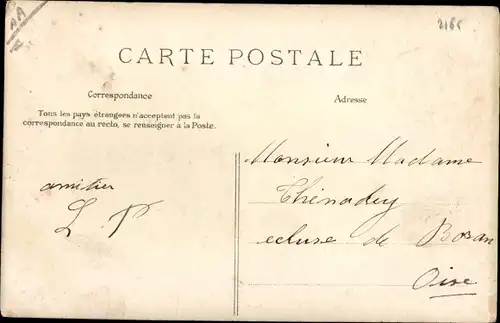 AA
2165
CARTE POSTALE
Correspondance
Adresse
Tous les pays étrangers n'acceptent pas la
correspondance au recto, se renseigner à la Poste.
Monsieur Madame
amitier
L P
ecluse de Boran
Oise